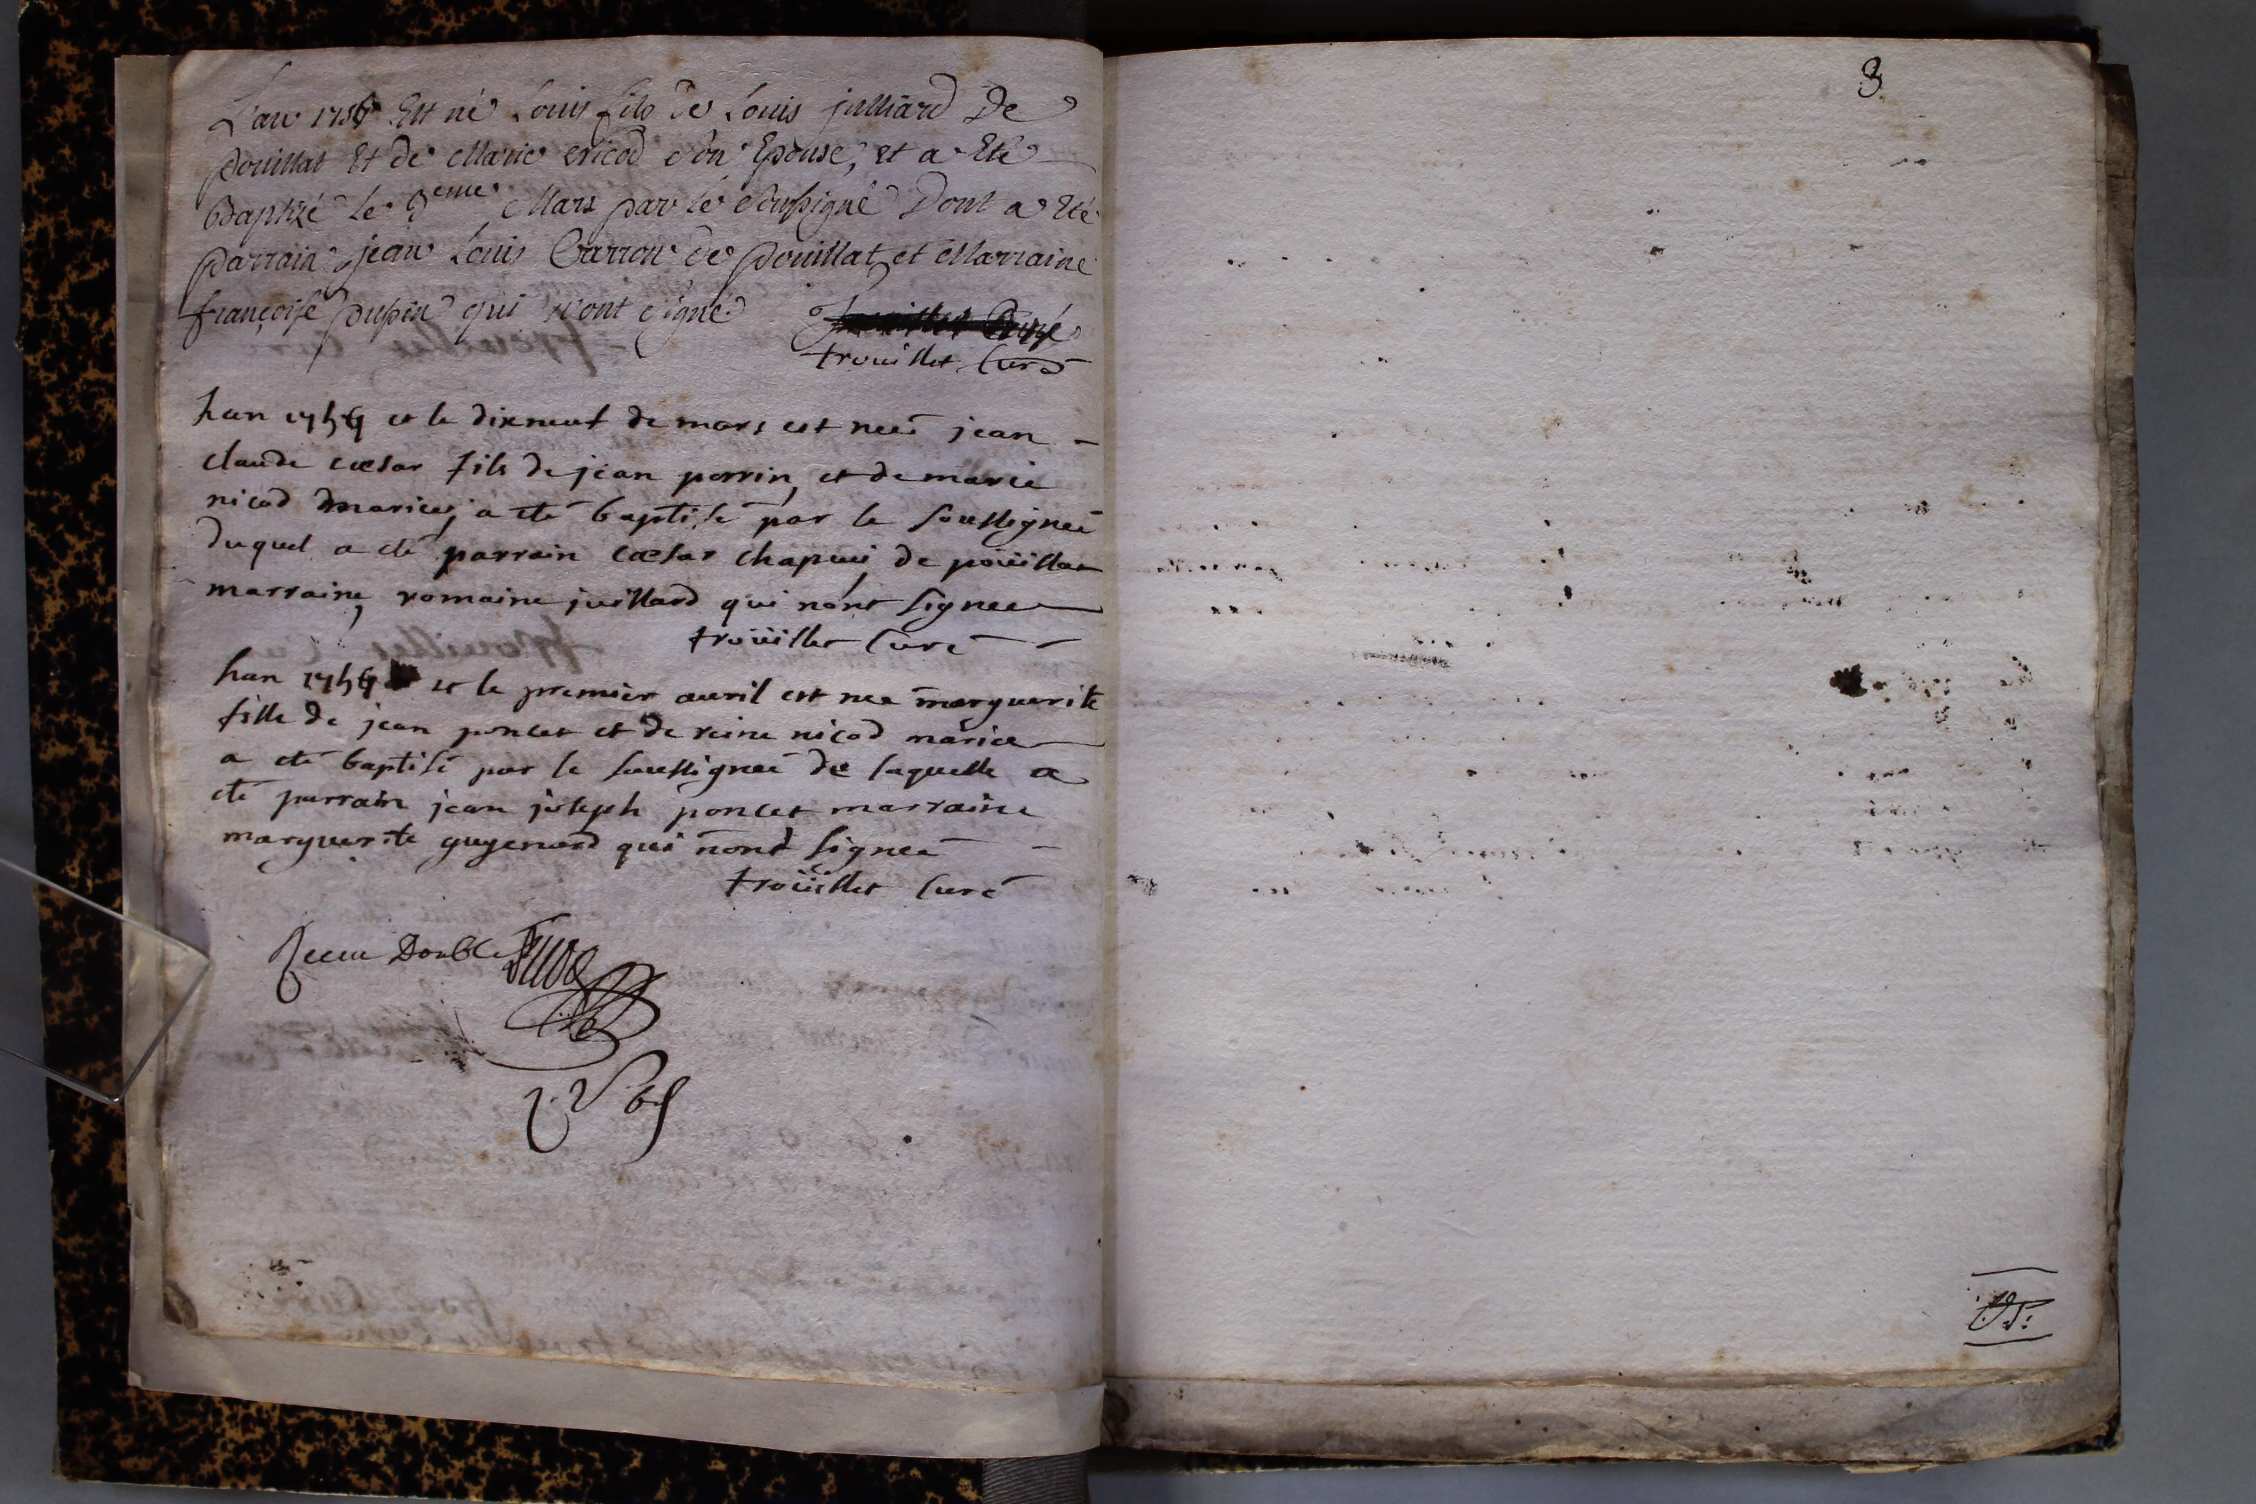 L'an 1756 Est né Louis fils de Louis julliard De
Pouillat Et de Marie nicod son Epouse, et a Eté
Baptizé le 9eme Mars par le soussigné Dont a Eté
Parrain jean Louis Carron de Pouillat et Marraine
françoise pupin qui n'ont signé
trouillet Curé
Lan 1756 et le dixneuf de mars est neé jean
claude cœsar fils de jean perrin, et de marie
nicod mariés, a eté baptisé par le soussigneé
duquel a eté parrain cœsar chapuis de poüillat
marraine, romaine juillard qui n'ont signee
troüillet Curé
Lan 1756 et le premier auril est nee marguerite
fille de jean poncet et de reine nicod maries
a eté baptisé par le soussigneé de laquelle a
eté parrain jean joseph poncet marraine
marguerite guyenard qui nont signeé
troüillet Curé
Receu Double
3